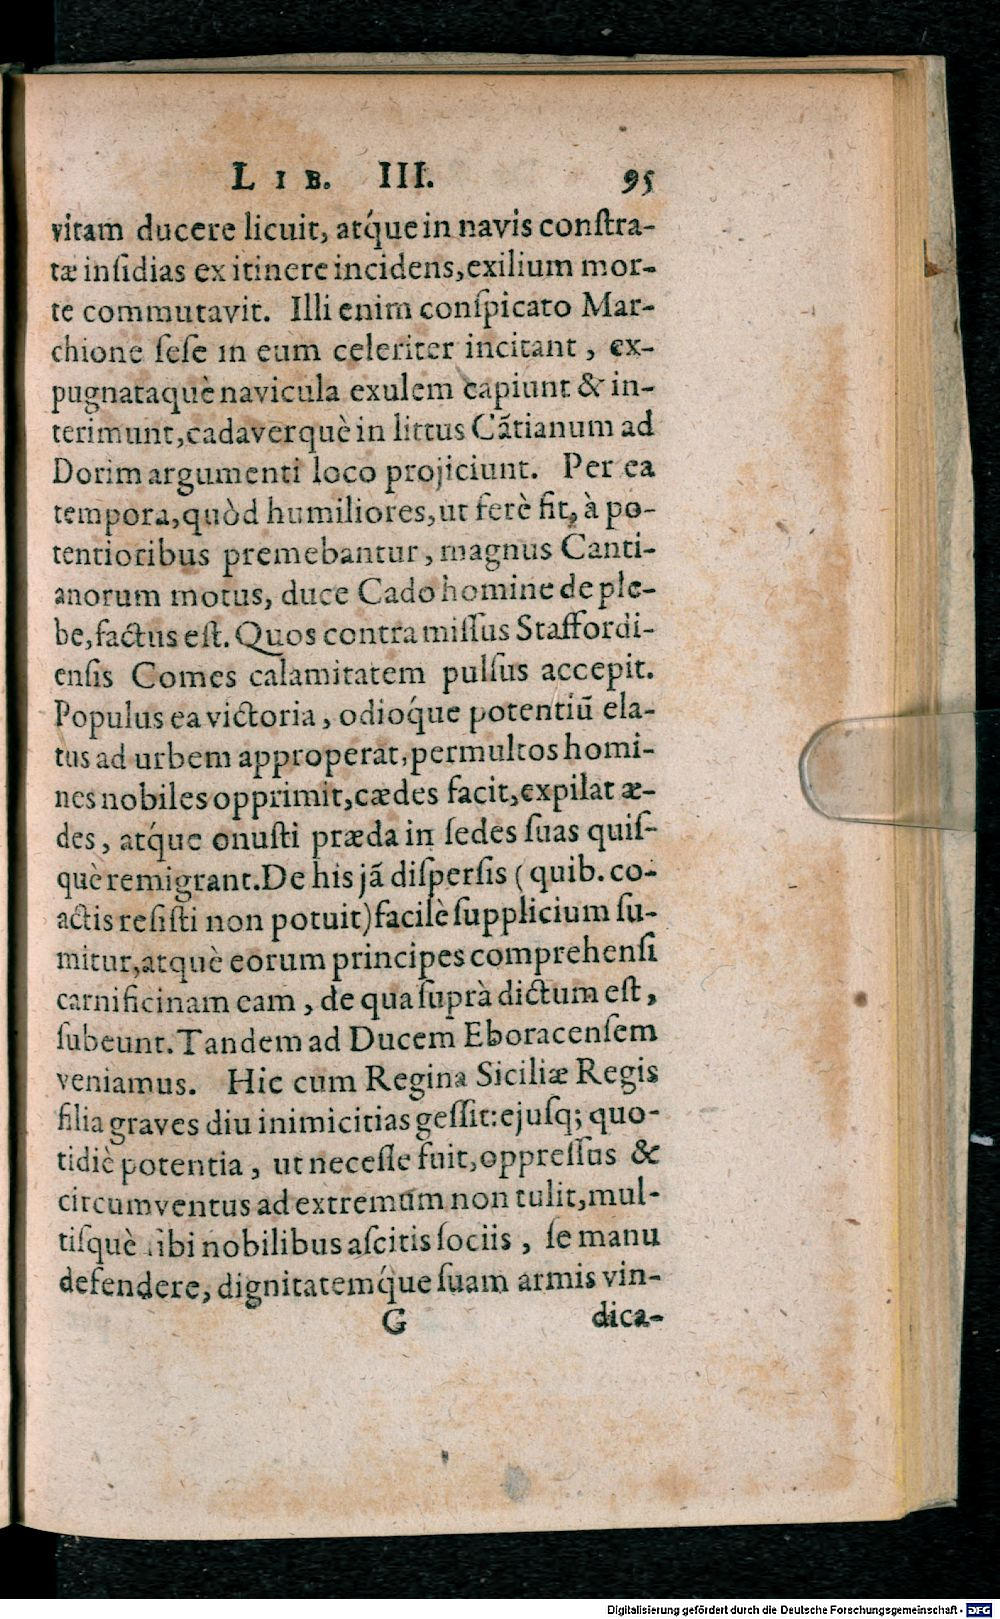 LIB. III. 95
vitam ducere licuit, atq́ue in navis conſtra-
tæ inſidias ex itinere incidens, exilium mor-
te commutavit. Illi enim conſpicato Mar-
chione ſeſe in eum celeriter incitant, ex-
pugnataquè navicula exulem capiunt & in-
terimunt, cadaverquè in littus Cãtianum ad
Dorim argumenti loco projiciunt. Per ea
tempora, quòd humiliores, ut ferè fit, à po-
tentioribus premebantur, magnus Canti-
anorum motus, duce Cado homine de ple-
be, factus eſt. Quos contra miſſus Staffordi-
enſis Comes calamitatem pulſus accepit.
Populus ea victoria, odioq́ue potentiũ ela-
tus ad urbem approperat, permultos homi-
nes nobiles opprimit, cædes facit, expilat æ-
des, atq́ue onuſti præda in ſedes ſuas quiſ-
què remigrant. De his jã diſperſis (quib. co-
actis reſiſti non potuit) facilè ſupplicium ſu-
mitur, atquè eorum principes comprehenſi
carnificinam eam, de qua ſuprà dictum eſt,
ſubeunt. Tandem ad Ducem Eboracenſem
veniamus. Hic cum Regina Siciliæ Regis
filia graves diu inimicitias geſſit: ejuſq; quo-
tidiè potentia, ut neceſſe fuit, oppreſſus &
circumventus ad extremum non tulit, mul-
tiſquè ſibi nobilibus aſcitis ſociis, ſe manu
defendere, dignitatemq́ue ſuam armis vin-
G dica-
Digitalisierung gefördert durch die Deutsche Forschungsgemeinschaft - DFG